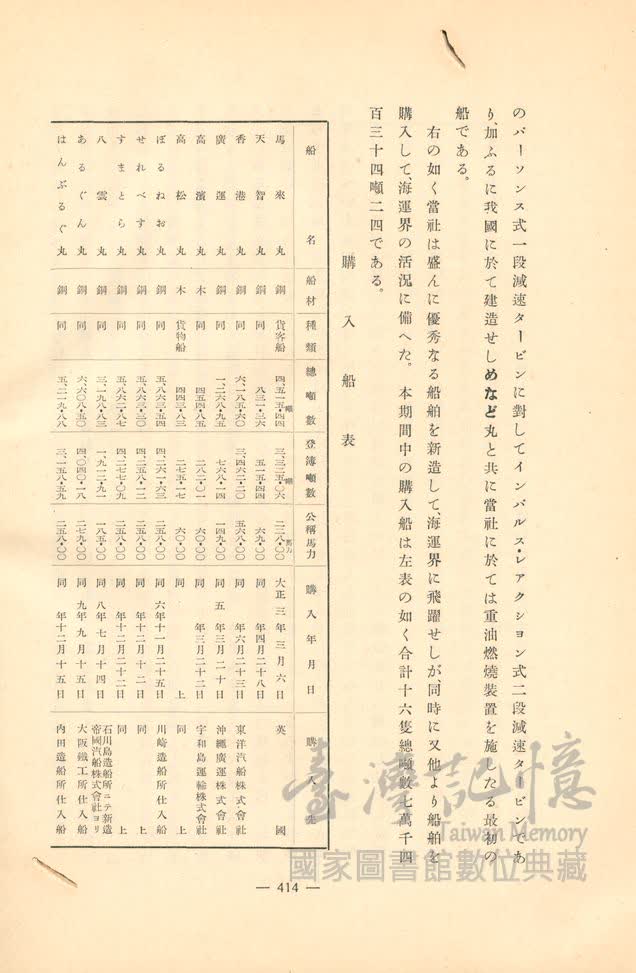 のパーソンス式一段減速タービンに對してインパルス・レアクション式二段減速タービンであ
り、加ふるに我國に於て建造せしめなど丸と共に當社に於ては重油燃燒裝置を施したる最初の
船である。
右の如く當社は盛んに優秀なる船舶を新造して、海運界に飛躍せしが、同時に又他より船舶を
購入して、海運界の活況に備へた。本期間中の購入船は左表の如く合計十六隻總噸數七萬千四
百三十四噸二四である。
購入船表
船名 船材 種類 總噸數 登簿噸數 公稱馬力 購入年月日 購入先
馬來丸 鋼 貨客船 四、五一五・四四 三、三二五・〇六 二三八・〇〇 大正三年三月六日 英國
天智丸 鋼 同 八三一・三六 五一五・四四 六九・〇〇 同年四月二十八日
香港丸 鋼 同 六、一八五・六〇 三、四六二・四〇 五六八・〇〇 同年六月二十三日 東洋汽船株式會社
廣運丸 鋼 同 一、二六八・九五 七六八・一四 一四九・〇〇 同五年三月二十日 沖繩廣運株式會社
高濱丸 木 同 四五四・八五 二八二・〇一 六〇・〇〇 同年三月二十二日 宇和島運輸株式會社
高松丸 木 貨物船 四四三・八三 二七五・一七 六〇・〇〇 同上 同上
ぼるねお丸 鋼 同 五、八六三・五四 四、二六一・六三 二五八・〇〇 同六年十一月二十五日 川崎造船所仕入船
せれべす丸 鋼 同 五、八六三・三〇 四、二五八・一二 二五八・〇〇 同年十二月十二日 同上
すまとら丸 鋼 同 五、八六二・八七 四、二七七・〇九 二五八・〇〇 同年十二月二十二日 同上
八雲丸 鋼 同 三、一九八・八三 一、九一二・九一 一八五・〇〇 同八年七月十四日 石川島造船所ニテ新造帝國汽船株式會社ヨリ
あるぐん丸 鋼 同 六、六〇八・五〇 四、〇四〇・一八 二七九・〇〇 同九年九月十五日 大阪鐵工所仕入船
はんぶるぐ丸 鋼 同 五、二一九・八八 三、一五八・五九 二五八・〇〇 同年十二月十五日 內田造船所仕入船
— 414 —
臺灣記憶
Taiwan Memory
國家圖書館數位典藏